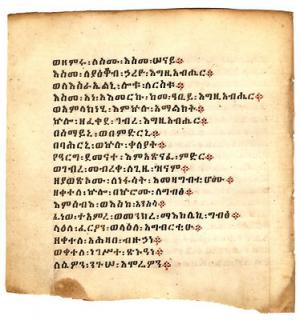 ወዘምሩ፡ለስሙ፡እስመ፡ሠናይ
እስመ፡ለያዕቆብ፡ኃረዮ፡እግዚአብሔር
ወለእስራኤልኒ፡ሎቱ፡ለርስቱ
እስመ፡አነ፡አእመርኩ፡ከመ፡ዓቢይ፡እግዚአብሔር
ወአምላክነሂ፡እምኵሉ፡አማልክት
ኵሎ፡ዘፈቀደ፡ገብረ፡እግዚአብሔር
በሰማይኒ፡ወበምድርኒ
በባሕርኒ፡ወበኵሉ፡ቀላያት
ያዐርግ፡ደመናተ፡እምአጽናፈ፡ምድር
ወገብረ፡መብረቀ፡ለጊዜ፡ዝናም
ዘያወጽኦሙ፡ለነፋሳት፡እመዛግብቲሆሙ
ዘቀተለ፡ኵሎ፡በኵሮሙ፡ለግብጽ
እምሰብእ፡ወእስከ፡እንስሳ
ፈነወ፡ተአምረ፡ወመንክረ፡ማእከሌኪ፡ግብጽ
ላዕለ፡ፈርዖን፡ወላዕለ፡አግብርቲሁ
ዘቀተለ፡አሕዛበ፡ብዙኃነ
ወቀተለ፡ነገሥተ፡ጽኑዓነ
ለሴዎን፡ንጉሠ፡አሞሬዎን